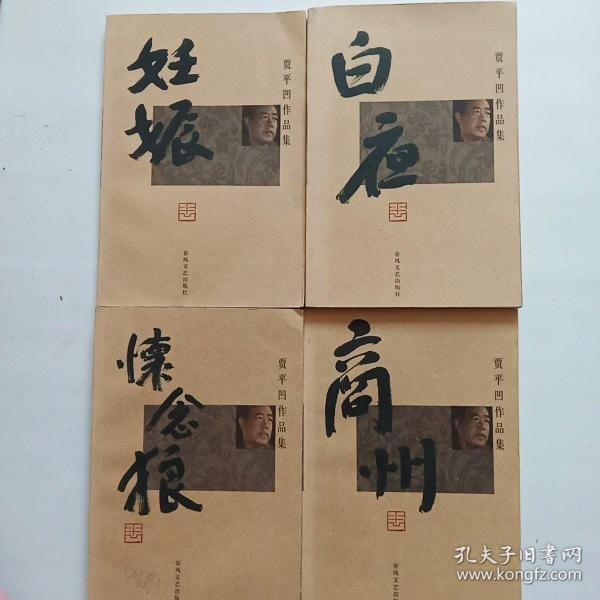 妊娠
贾平凹作品集
春风文艺出版社
白夜
贾平凹作品集
春风文艺出版社
懷念狼
贾平凹作品集
春风文艺出版
商州
贾平凹作品集
春风文艺出版
孔夫子旧书网
www.kongfz.com